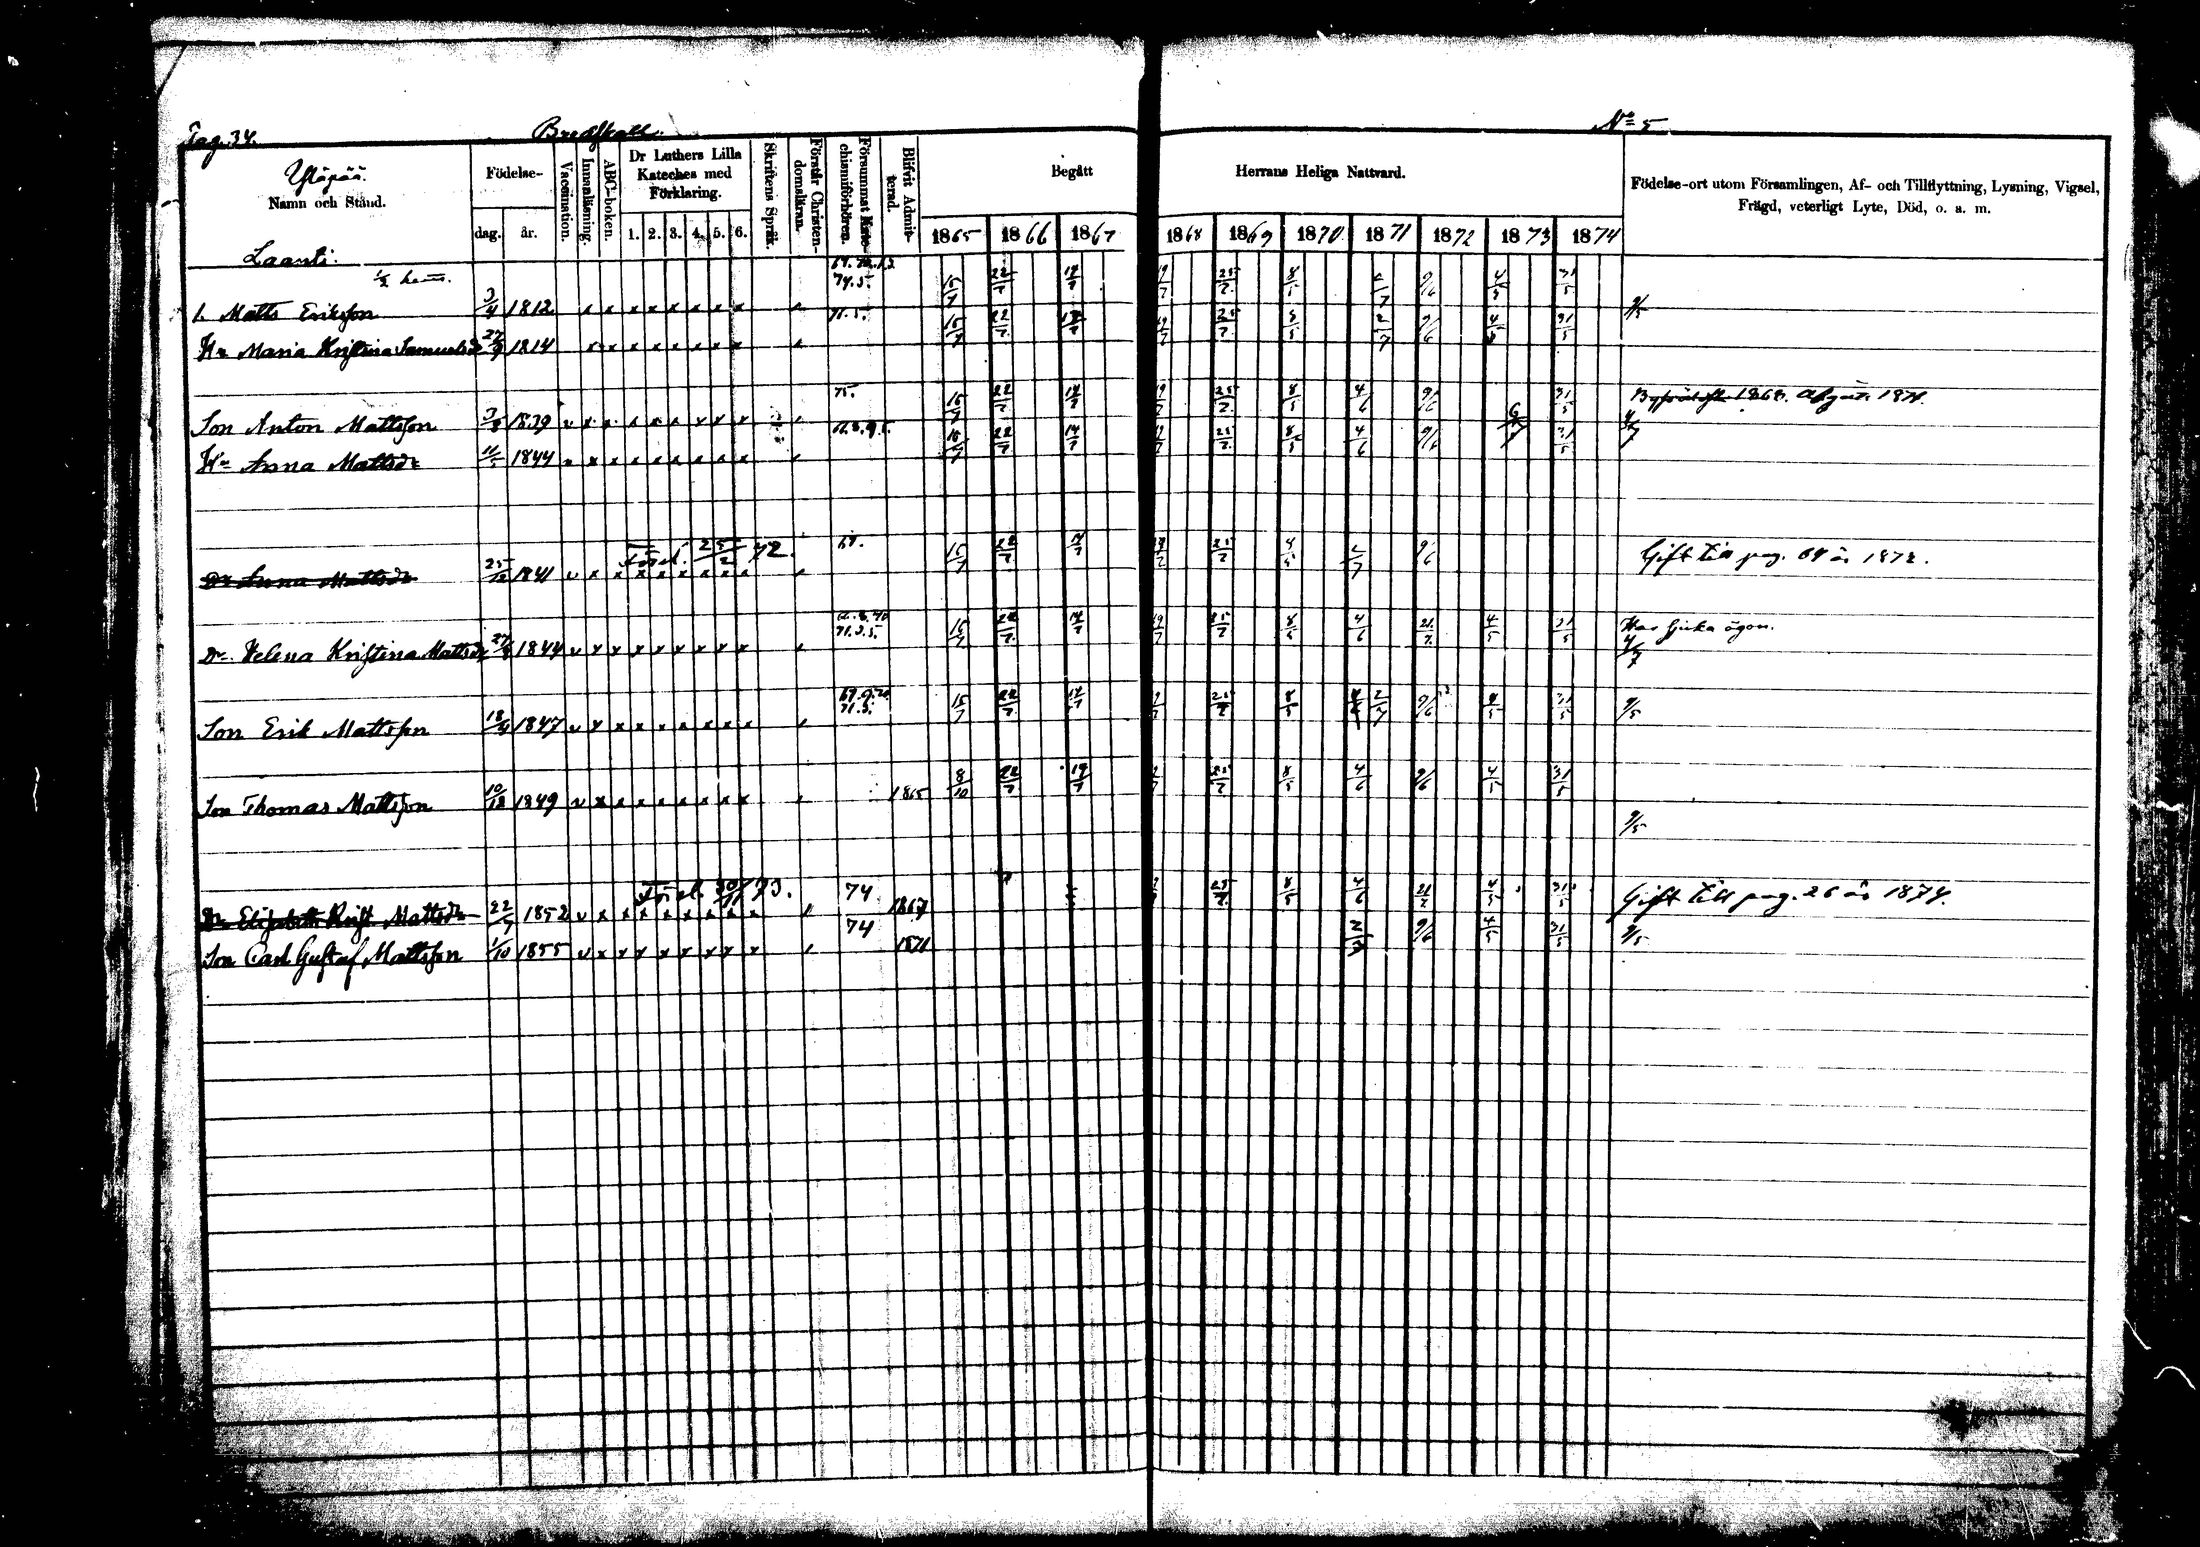 Pag. 34. Bredskall. No 5
Yläpää.
Namn och Stånd.
Födelse-
dag. år.
Vaccination.
Innanläsning.
ABC-boken.
Dr Luthers Lilla Kateches med Förklaring.
1. 2. 3. 4. 5. 6.
Skriftens Språk.
Förstår Christen-domsläran.
Försummat Kate-chismiförhören.
Blifvit Admit-terad.
Begått Herrans Heliga Nattvard.
1865 1866 1867 1868 1869 1870 1871 1872 1873 1874
Födelse-ort utom Församlingen, Af- och Tillflyttning, Lysning, Vigsel,
Frägd, veterligt Lyte, Död, o. s. m.
Laanti.
1/2 hem.
1. Matts Eriksson 3/4 1812 x x x x x x x x 16/7 22/7 14/7 19/7 25/7 8/5 2/7 9/6 4/5 31/5 9/5
Hu Maria Kristina Samuelsdr 27/9 1814 x x x x x x x x 16/7 22/7 14/7 19/7 25/7 8/5 2/7 9/6 4/5 31/5
Son Anton Mattsson 3/8 1839 v x x x x x x x x 75. 16/7 22/7 14/7 19/7 25/7 8/5 4/6 9/6 31/5 1868. Afgått. 1874.
Hu Anna Mattsdr 11/5 1844 v x x x x x x x x 16/7 22/7 14/7 19/7 25/7 8/5 4/6 9/6 31/5 4/7
Förel. 25/2 72.
Dr Anna Mattsdr 25/12 1841 v x x x x x x x x 16/7 22/7 14/7 25/7 2/7 9/6 Gift till pag. 64 år 1872.
Dr. Helena Kristina Mattsdr 1844 v x x x x x x x x 16/7 22/7 14/7 19/7 25/7 8/5 4/6 21/7 4/5 31/5 Har sjuka ögon.
4/7
Son Erik Mattsson 18/4 1847 v x x x x x x x x 16/7 22/7 14/7 25/7 8/5 2/7 9/6 4/5 31/5 9/5
Son Thomas Mattsson 10/12 1849 v x x x x x x x x 1865 8/10 22/7 19/7 25/7 8/5 4/6 9/6 4/5 31/5
9/5
Förel. 30/11 73.
Dr Elisabeth Krist. Mattsdr 22/7 1852 v x x x x x x x x 74 1867 25/7 8/5 4/6 21/7 4/5 31/5 Gift till pag. 26 år 1874.
Son Carl Gustaf Mattsson 1/10 1855 v x x x x x x x x 74 1871 2/7 9/6 4/5 31/5 9/5